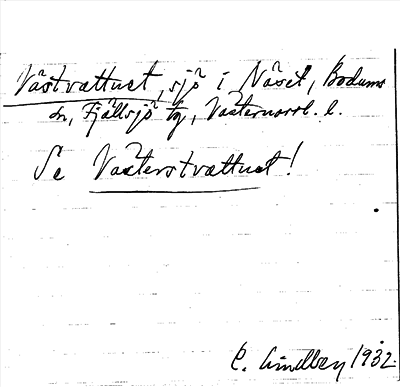 Västvattnet, sjö i Näset, Bodums
sn, Fjällsjö tg, Västernorrl. l.
Se Västerstvattnet!
C. Lindberg 1932.